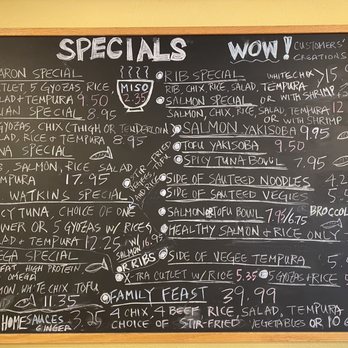 SPECIALS
WOW! CUSTOMERS'
CREATIONS
ARON SPECIAL
UTLET, 5 GYOZAS, RICE
LAD + TEMPURA 9.50
IAN SPECIAL 8.95
GYOZAS, CHIX (THIGH OR TENDERLOIN)
RICE + TEMPURA
NA SPECIAL
B, SALMON, RICE SALAD
MPURA 17.95
WATKINS SPECIAL
CY TUNA, CHOICE OF ONE
WER OR 5 GYOZAS W/ RICE
LAD + TEMPURA 12.25 W/ SALMON 16.95
OR RIBS
EGA SPECIAL
FAT, HIGH PROTEIN
OMEGA
MON, WHITE CHIX, TOFU
11.35
HOME SAUCES 3.25
GINGER
MISO
2.35
RIB SPECIAL WHITE CHIX 15
RIB, CHIX, RICE, SALAD, TEMPURA OR WITH SHRIMP
SALMON SPECIAL
SALMON, CHIX, RICE, SALAD, TEMPURA 12
OR WITH SHRIMP
SALMON YAKISOBA 9.95
TOFU YAKISOBA 9.50
SPICY TUNA BOWL 7.95
SIDE OF SAUTEED NOODLES 4.2
SIDE OF SAUTEED VEGIES 5.
SALMON OR TOFU BOWL 7.95/6.75 BROCCOL
HEALTHY SALMON + RICE ONLY
SIDE OF VEGEE TEMPURA 5.
XTRA CUTLET W/ RICE 5.35 5 GYOZAS + RICE
FAMILY FEAST 39.99
4 CHIX, 4 BEEF, RICE, SALAD, TEMPURA
CHOICE OF STIR-FRIED VEGETABLES OR 10 G